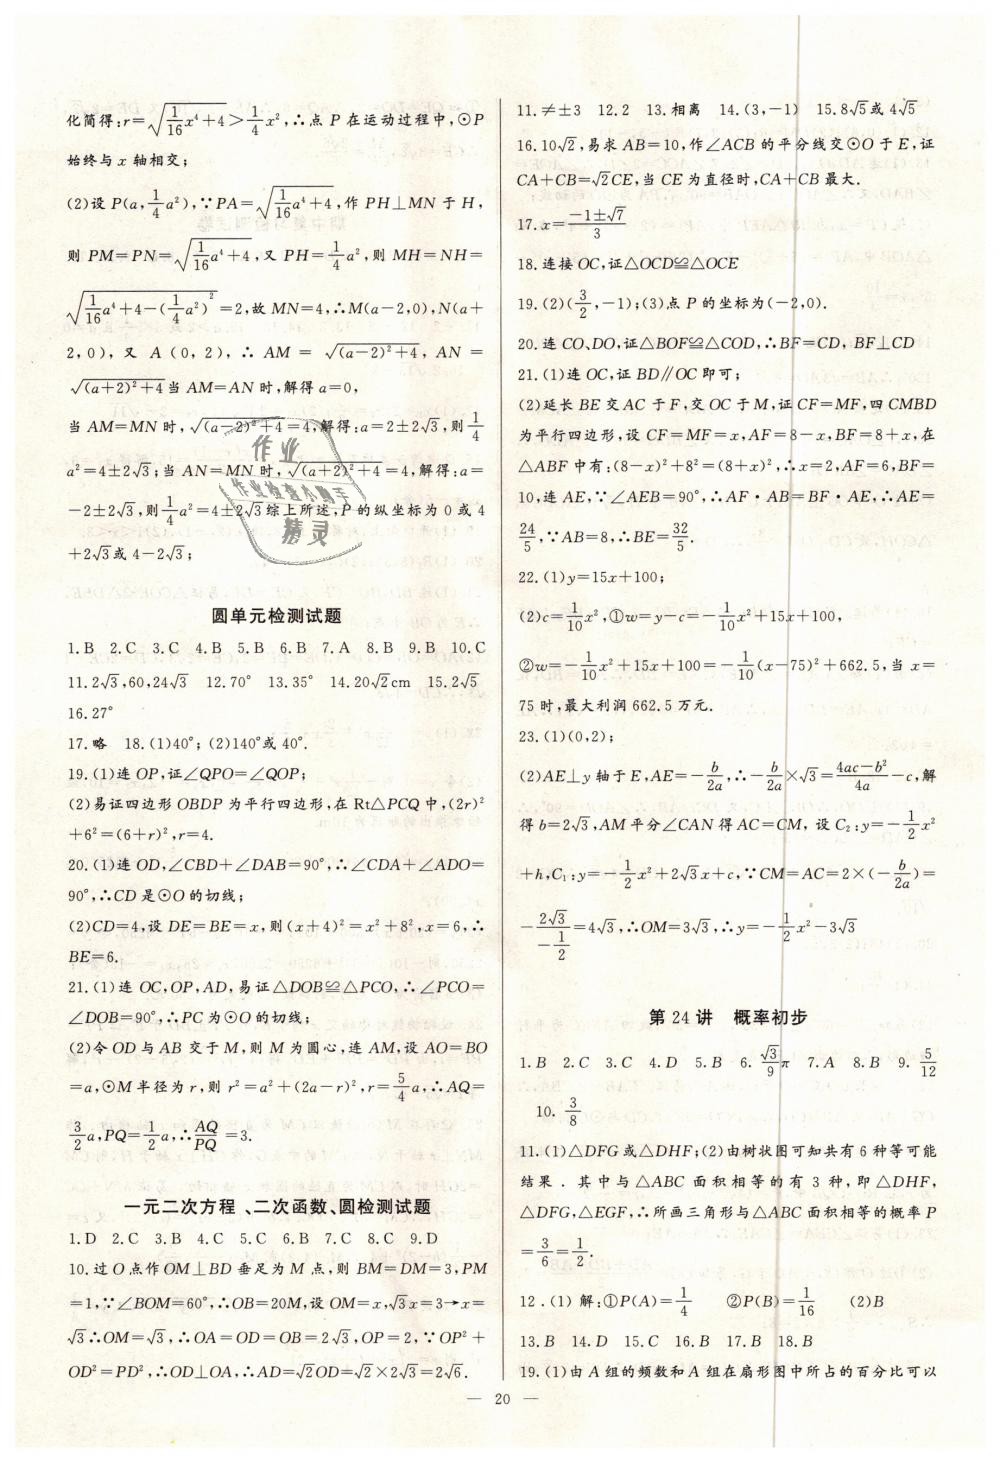 化简得:r=√(1/16 x⁴+4)>1/4 x²,∴点 P 在运动过程中,⊙P
始终与 x 轴相交;
(2)设 P(a,1/4 a²),∵PA=√(1/16 a⁴+4),作 PH⊥MN 于 H,
则 PM=PN=√(1/16 a⁴+4),又 PH=1/4 a²,则 MH=NH=
√(1/16 a⁴+4-(1/4 a²)²)=2,故 MN=4,∴M(a-2,0),N(a+
2,0),又 A(0,2),∴AM=√((a-2)²+4),AN=
√((a+2)²+4)当 AM=AN 时,解得 a=0,
当 AM=MN 时,√((a-2)²+4)=4,解得:a=2±2√3,则1/4
a²=4±2√3;当 AN=MN 时,√((a+2)²+4)=4,解得:a=
-2±2√3,则1/4 a²=4±2√3综上所述,P 的纵坐标为 0 或 4
+2√3或 4-2√3;
圆单元检测试题
1.B 2.C 3.C 4.B 5.B 6.B 7.A 8.B 9.B 10.C
11.2√3,60,24√3 12.70° 13.35° 14.20√2cm 15.2√5
16.27°
17.略 18.(1)40°;(2)140°或 40°.
19.(1)连 OP,证∠QPO=∠QOP;
(2)易证四边形 OBDP 为平行四边形,在 Rt△PCQ 中,(2r)²
+6²=(6+r)²,r=4.
20.(1)连 OD,∠CBD+∠DAB=90°,∴∠CDA+∠ADO=
90°,∴CD 是⊙O 的切线;
(2)CD=4,设 DE=BE=x,则(x+4)²=x²+8²,x=6,∴
BE=6.
21.(1)连 OC,OP,AD,易证△DOB≌△PCO,∴∠PCO=
∠DOB=90°,∴PC 为⊙O 的切线;
(2)令 OD 与 AB 交于 M,则 M 为圆心,连 AM,设 AO=BO
=a,⊙M 半径为 r,则 r²=a²+(2a-r)²,r=5/4 a,∴AQ=
3/2 a,PQ=1/2 a,∴AQ/PQ=3.
一元二次方程、二次函数、圆检测试题
1.D 2.C 3.B 4.C 5.C 6.B 7.C 8.C 9.D
10.过 O 点作 OM⊥BD 垂足为 M 点,则 BM=DM=3,PM
=1,∵∠BOM=60°,∴OB=20M,设 OM=x,√3x=3→x=
√3∴OM=√3,∴OA=OD=OB=2√3,OP=2,∵OP²+
OD²=PD²,∴OD⊥OA,∴AD=√2OD=√2×2√3=2√6.
11.≠±3 12.2 13.相离 14.(3,-1) 15.8√5或 4√5
16.10√2,易求 AB=10,作∠ACB 的平分线交⊙O 于 E,证
CA+CB=√2CE,当 CE 为直径时,CA+CB 最大.
17.x=(-1±√7)/3
18.连接 OC,证△OCD≌△OCE
19.(2)(3/2,-1);(3)点 P 的坐标为(-2,0).
20.连 CO、DO,证△BOF≌△COD,∴BF=CD,BF⊥CD
21.(1)连 OC,证 BD∥OC 即可;
(2)延长 BE 交 AC 于 F,交 OC 于 M,证 CF=MF,四 CMBD
为平行四边形,设 CF=MF=x,AF=8-x,BF=8+x,在
△ABF 中有:(8-x)²+8²=(8+x)²,∴x=2,AF=6,BF=
10,连 AE,∵∠AEB=90°,∴AF·AB=BF·AE,∴AE=
24/5,∵AB=8,∴BE=32/5.
22.(1)y=15x+100;
(2)c=1/10 x²,①w=y-c=-1/10 x²+15x+100,
②w=-1/10 x²+15x+100=-1/10(x-75)²+662.5,当 x=
75 时,最大利润 662.5 万元.
23.(1)(0,2);
(2)AE⊥y 轴于 E,AE=-b/2a,∴-b/2a×√3=(4ac-b²)/4a-c,解
得 b=2√3,AM 平分∠CAN 得 AC=CM,设 C₂:y=-1/2 x²
+h,C₁:y=-1/2 x²+2√3x+c,∵CM=AC=2×(-b/2a)=
-2√3/(-1/2)=4√3,∴OM=3√3,∴y=-1/2 x²-3√3
第 24 讲 概率初步
1.B 2.C 3.C 4.D 5.B 6.√3/9 π 7.A 8.B 9.5/12
10.3/8
11.(1)△DFG 或△DHF;(2)由树状图可知共有 6 种等可能
结果.其中与△ABC 面积相等的有 3 种,即△DHF,
△DFG,△EGF,∴所画三角形与△ABC 面积相等的概率 P
=3/6=1/2.
12.(1)解:①P(A)=1/4 ②P(B)=1/16 (2)B
13.B 14.D 15.C 16.B 17.B 18.B
19.(1)由 A 组的频数和 A 组在扇形图中所占的百分比可以
— 20 —
作业
作业检查小助手
精灵